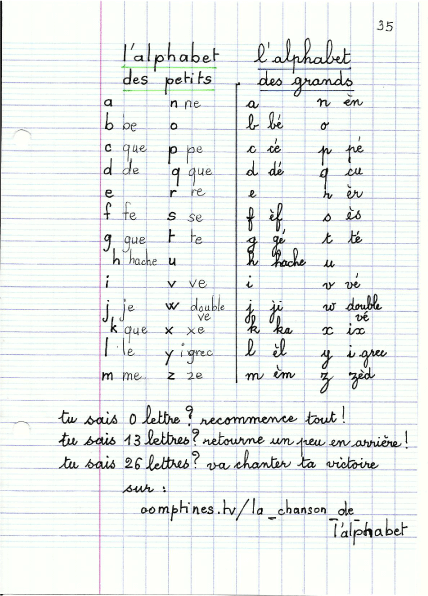 35
l'alphabet l'alphabet
des petits des grands
a n ne a n èn
b be o b bé o
c que p pe c cé p pé
d de q que d dé q cu
e r re e r èr
f fe s se f èf s ès
g gue t te g gé t té
h hache u h hache u
i v ve i v vé
j je w double ve j ji w double vé
k que x xe k ka x ix
l le y igrec l èl y i grec
m me z ze m èm z zèd
tu sais 0 lettre? recommence tout!
tu sais 13 lettres? retourne un peu en arrière!
tu sais 26 lettres? va chanter ta victoire
sur :
comptines.tv/la_chanson_de_
l'alphabet